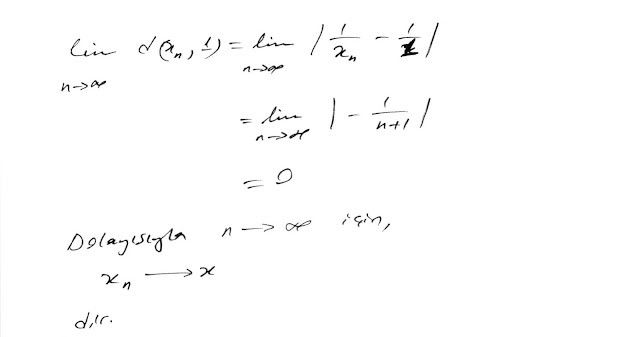 lim n→∞ d(xₙ, 1) = lim n→∞ | 1/xₙ − 1/1 |
= lim n→∞ | − 1/(n+1) |
= 0
Dolayısıyla n → ∞ için,
xₙ ⟶ x
dir.